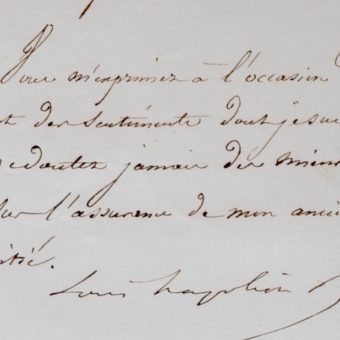 Vous m'exprimez à l'occasion
des sentiments dont je sui
doutez jamais des mien
sur l'assurance de mon anci
itié.
Louis Napoléon